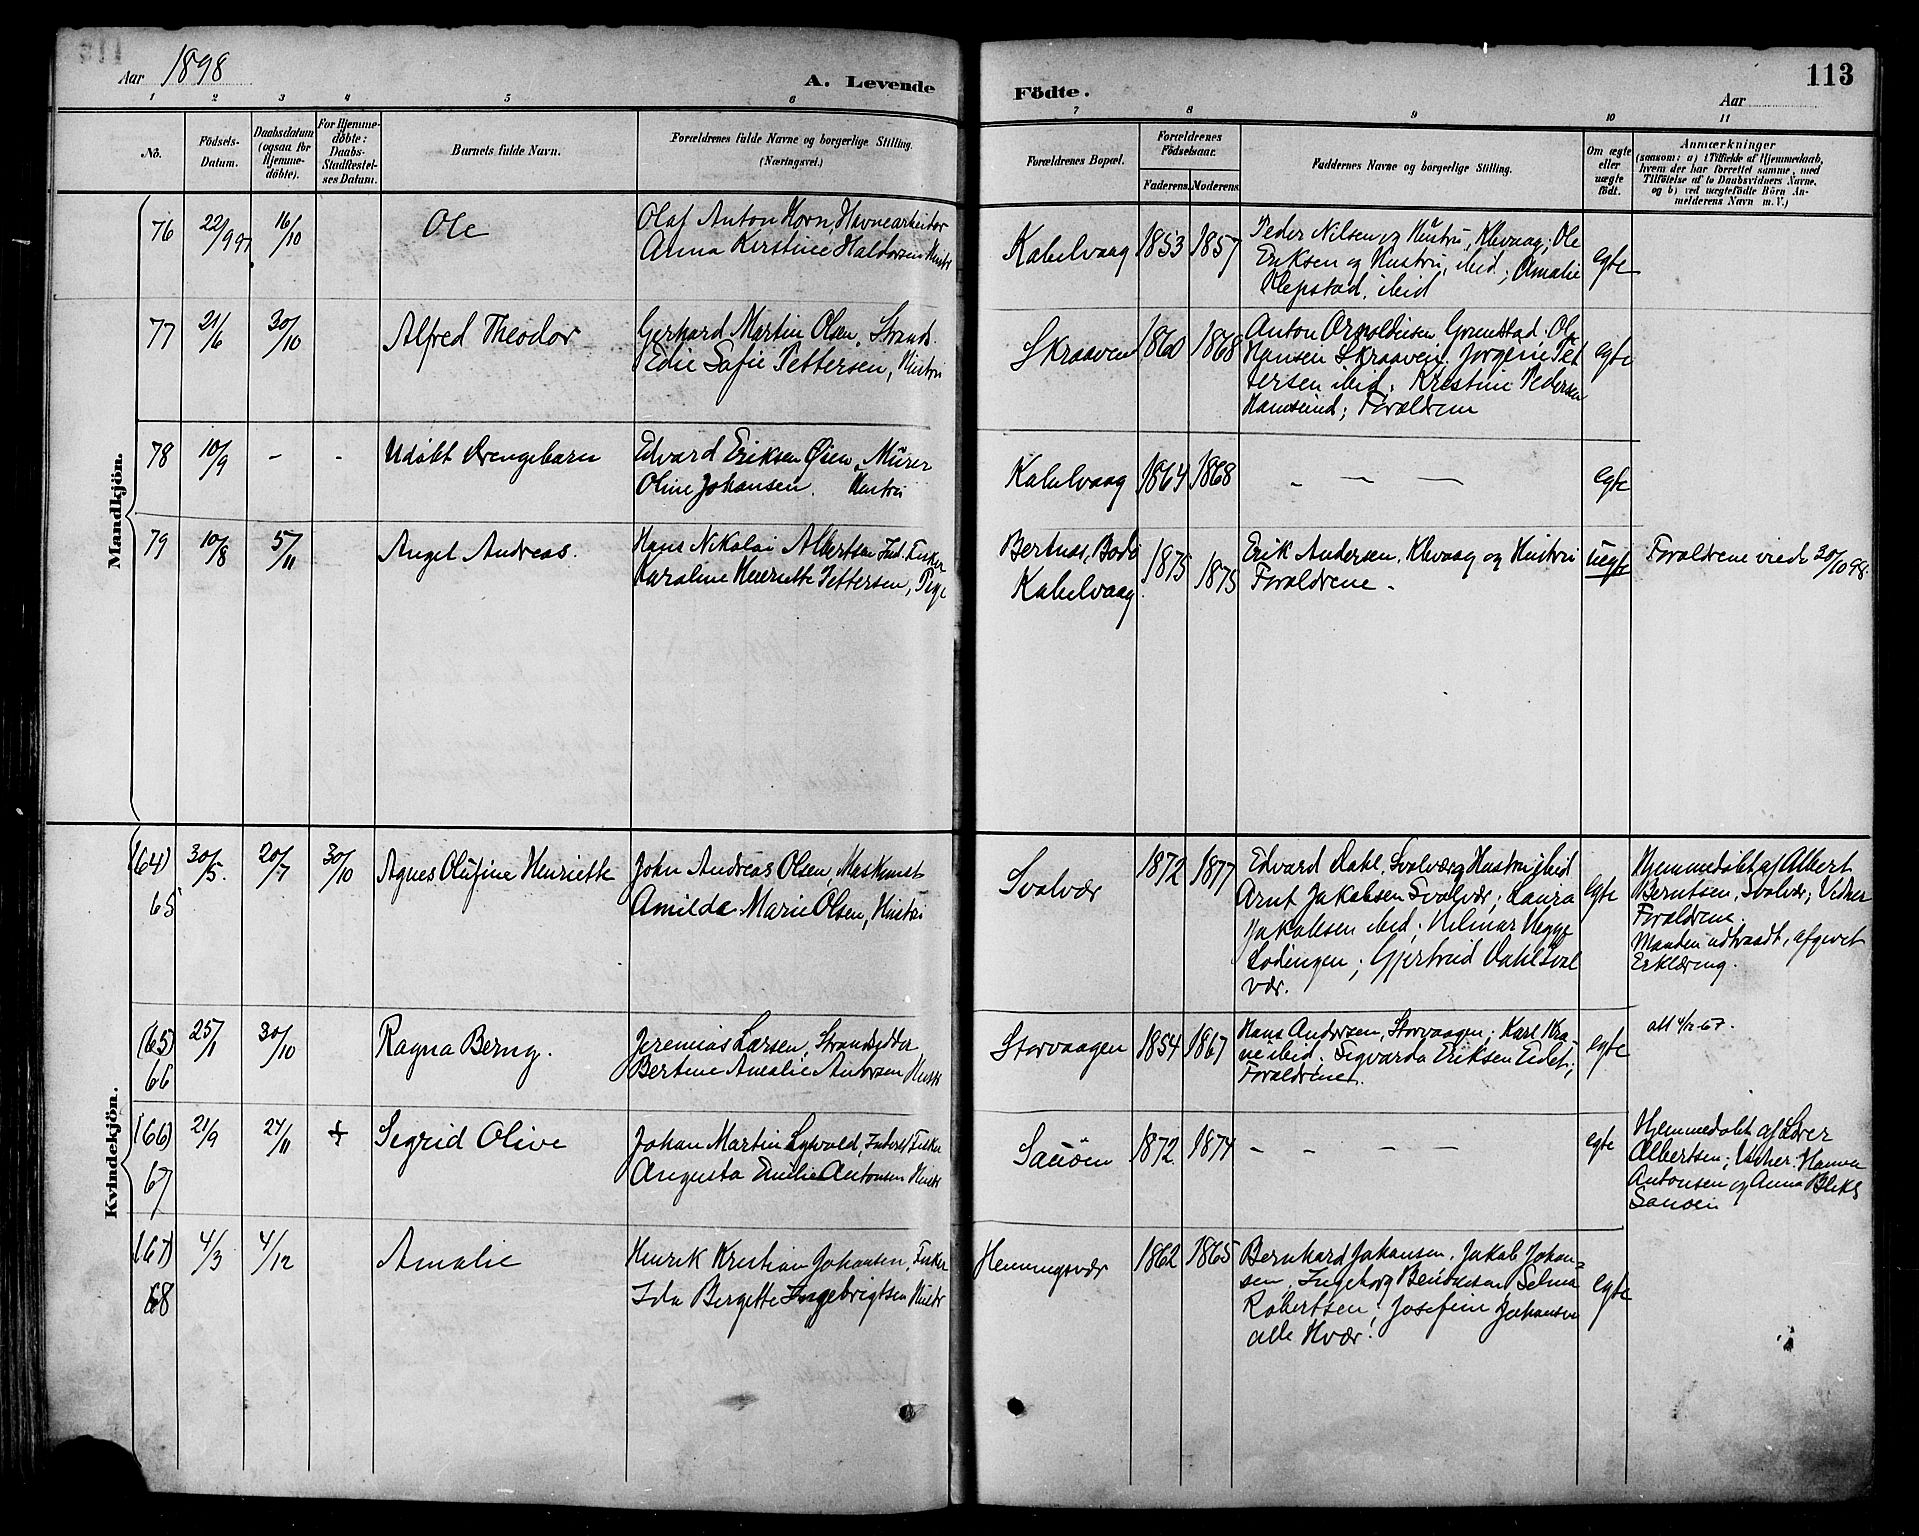 Aar 1898
A. Levende
Födte.
Aar
113
1
2
3
4
5
6
7
8
9
10
11
No.
Födsels-
Datum.
Daabsdatum
(ogsaa for
Hjemme-
döbte).
For Hjemme-
döbte:
Daabs-
Stadfæstel-
ses Datum.
Barnets fulde Navn.
Forældrenes fulde Navne og borgerlige Stilling.
(Næringsvei.)
Forældrenes Bopæl.
Forældrenes
Födselsaar.
Faderens.
Moderens.
Faddernes Navne og borgerlige Stilling.
Om ægte
eller
uægte
født.
Anmærkninger
(saasom: a) i Tilfælde af Hjemmedaab,
hvem der har forrettet samme, med
Tilföielse af to Daabsvidners Navne,
og b) ved uægtefödte Börn An-
melderens Navn m. V.)
Mandkjön.
76
22/9 97
16/10
Ole
Olaf Anton Horn, Havnearbeider
Anna Kirstine Haldorsen Hustr
Kabelvaag
1853
1857
Peder Nilsen og Hustru, Klevaag; Ole
Eriksen og Hustru, ibid; Amalie
Klepstad, ibid
egte
77
21/6
30/10
Alfred Theodor
Gerhard Martin Olsen, Strands.
Edie Sofie Pettersen, Hustru
Skraaven
1860
1868
Anton Arnoldusen Grundstad; Ole
Hansen Skraaven. Jørgene Pet
tersen ibid; Kristine Pedersen
Hamsund; Forældrene
egte
78
10/9
-
-
Udøbt Drengebarn
Edvard Eriksen Øien, Mürer
Oline Johansen. Hustru
Kabelvaag
1864
1868
— — —
egte
79
10/8
5/11
Anget Andreas.
Hans Nikolai Albertsen Ind. Fisker
Karoline Henriette Pettersen, Pige
Bertnes, Bodø
Kabelvaag
1875
1875
Erik Andersen, Klevaag og Hustru
Forældrene.
uegte
Forældrene viede 30/10 98.
Kvindekjön.
(64)
65
30/5.
20/7
30/10
Agnes Olufine Henriette
John Andreas Olsen, Maskinist
Amilde Marie Olsen, Hustru
Svolvær
1872
1877
Edvard Dahl, Svolvær og Hustru, ibid
Arnt Jakobsen Svolvær; Laura
Jakobsen ibid; Hilmar Hegge
Lødingen; Gjertrud Dahl Svol
vær.
egte
Hjemmedøbt af Albert
Berntsen, Svolvær; Vidner
Forældrene.
Manden udtraadt, afgivet
Erklæring.
(65)
66
25/1
30/10
Ragna Berny.
Jeremias Larsen, Strandsidder
Bertine Amalie Andersen Hustr
Storvaagen
1854
1867
Hans Andersen, Storvaagen; Karl Kra
ne ibid. Sigvarda Eriksen Eidet;
Forældrene.
egte
att 4/12-67.
(66)
67
21/9
24/11
+
Sigrid Olive
Johan Martin Lyvold, Inderst Fisker
Augusta Emilie Antonsen Hustr
Sauøen
1872
1874
— — — —
egte
Hjemmedøbt af Lærer
Albertsen; Vidner. Hanna
Antonsen og Anna Bliks
Sauøen
(67)
68
4/3
4/12
Amalie
Henrik Kristian Johansen, Fisker
Ida Bergette Ingebrigtsen Hustr
Henningsvær
1862
1865
Bernhard Johansen, Jakob Johan-
sen, Ingeborg Benoesen, Selma
Robertsen; Josefine Johansen
alle Hvær.
egte